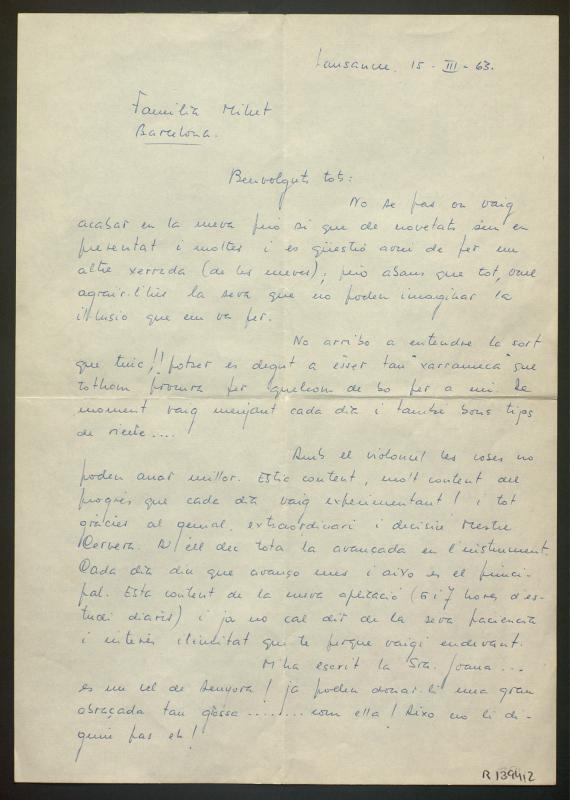 Lausanne, 15 - III - 63.
Familia Milet
Barcelona.
Benvolguts tots:
No se pas on vaig
acabar en la meva però si que de novetats se'm en
presentat i moltes i es qüestió avui de fer un
altre xerrada (de les meves); però abans que tot, vull
agrair-l'his la seva que no poden imaginar la
il·lusio que em va fer.
No arribo a entendre la sort
que tinc!! potser es degut a ésser tan "xarrameca" que
tothom procura fer quelcom de bo per a mi. De
moment vaig menjant cada dia i també bons tips
de riure....
Amb el violoncel les coses no
poden anar millor. Estic content, molt content del
progrés que cada dia vaig experimentant! i tot
gràcies al genial, extraordinari i decisiu Mestre
Cervera. A ell dec tota la avançada en l'instrument.
Cada dia diu que avanço mes i aixo es el princi-
pal. Esta content de la meva aplicació (6 i 7 hores d'es-
tudi diaris) i ja no cal dir de la seva paciencia
i interès il·limitat que te perque vaigi endevant.
M'ha escrit la Sra. Joana...
es un cel de Senyora! ja poden donar-li una gran
abraçada tan grossa ........ com ella! Aixo no li di-
guin pas eh!
R 13994/2